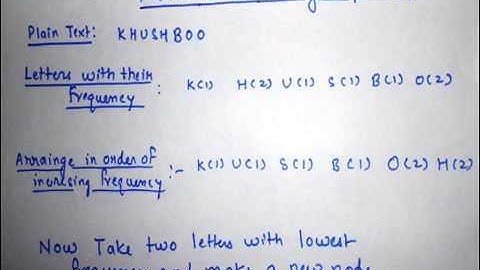 Plain Text: KHUSHBOO
Letters with their
Frequency : K(1) H(2) U(1) S(1) B(1) O(2)
Arrainge in order of
incrising frequency :- K(1) U(1) S(1) B(1) O(2) H(2)
Now Take two letters with lowest
and make a new node